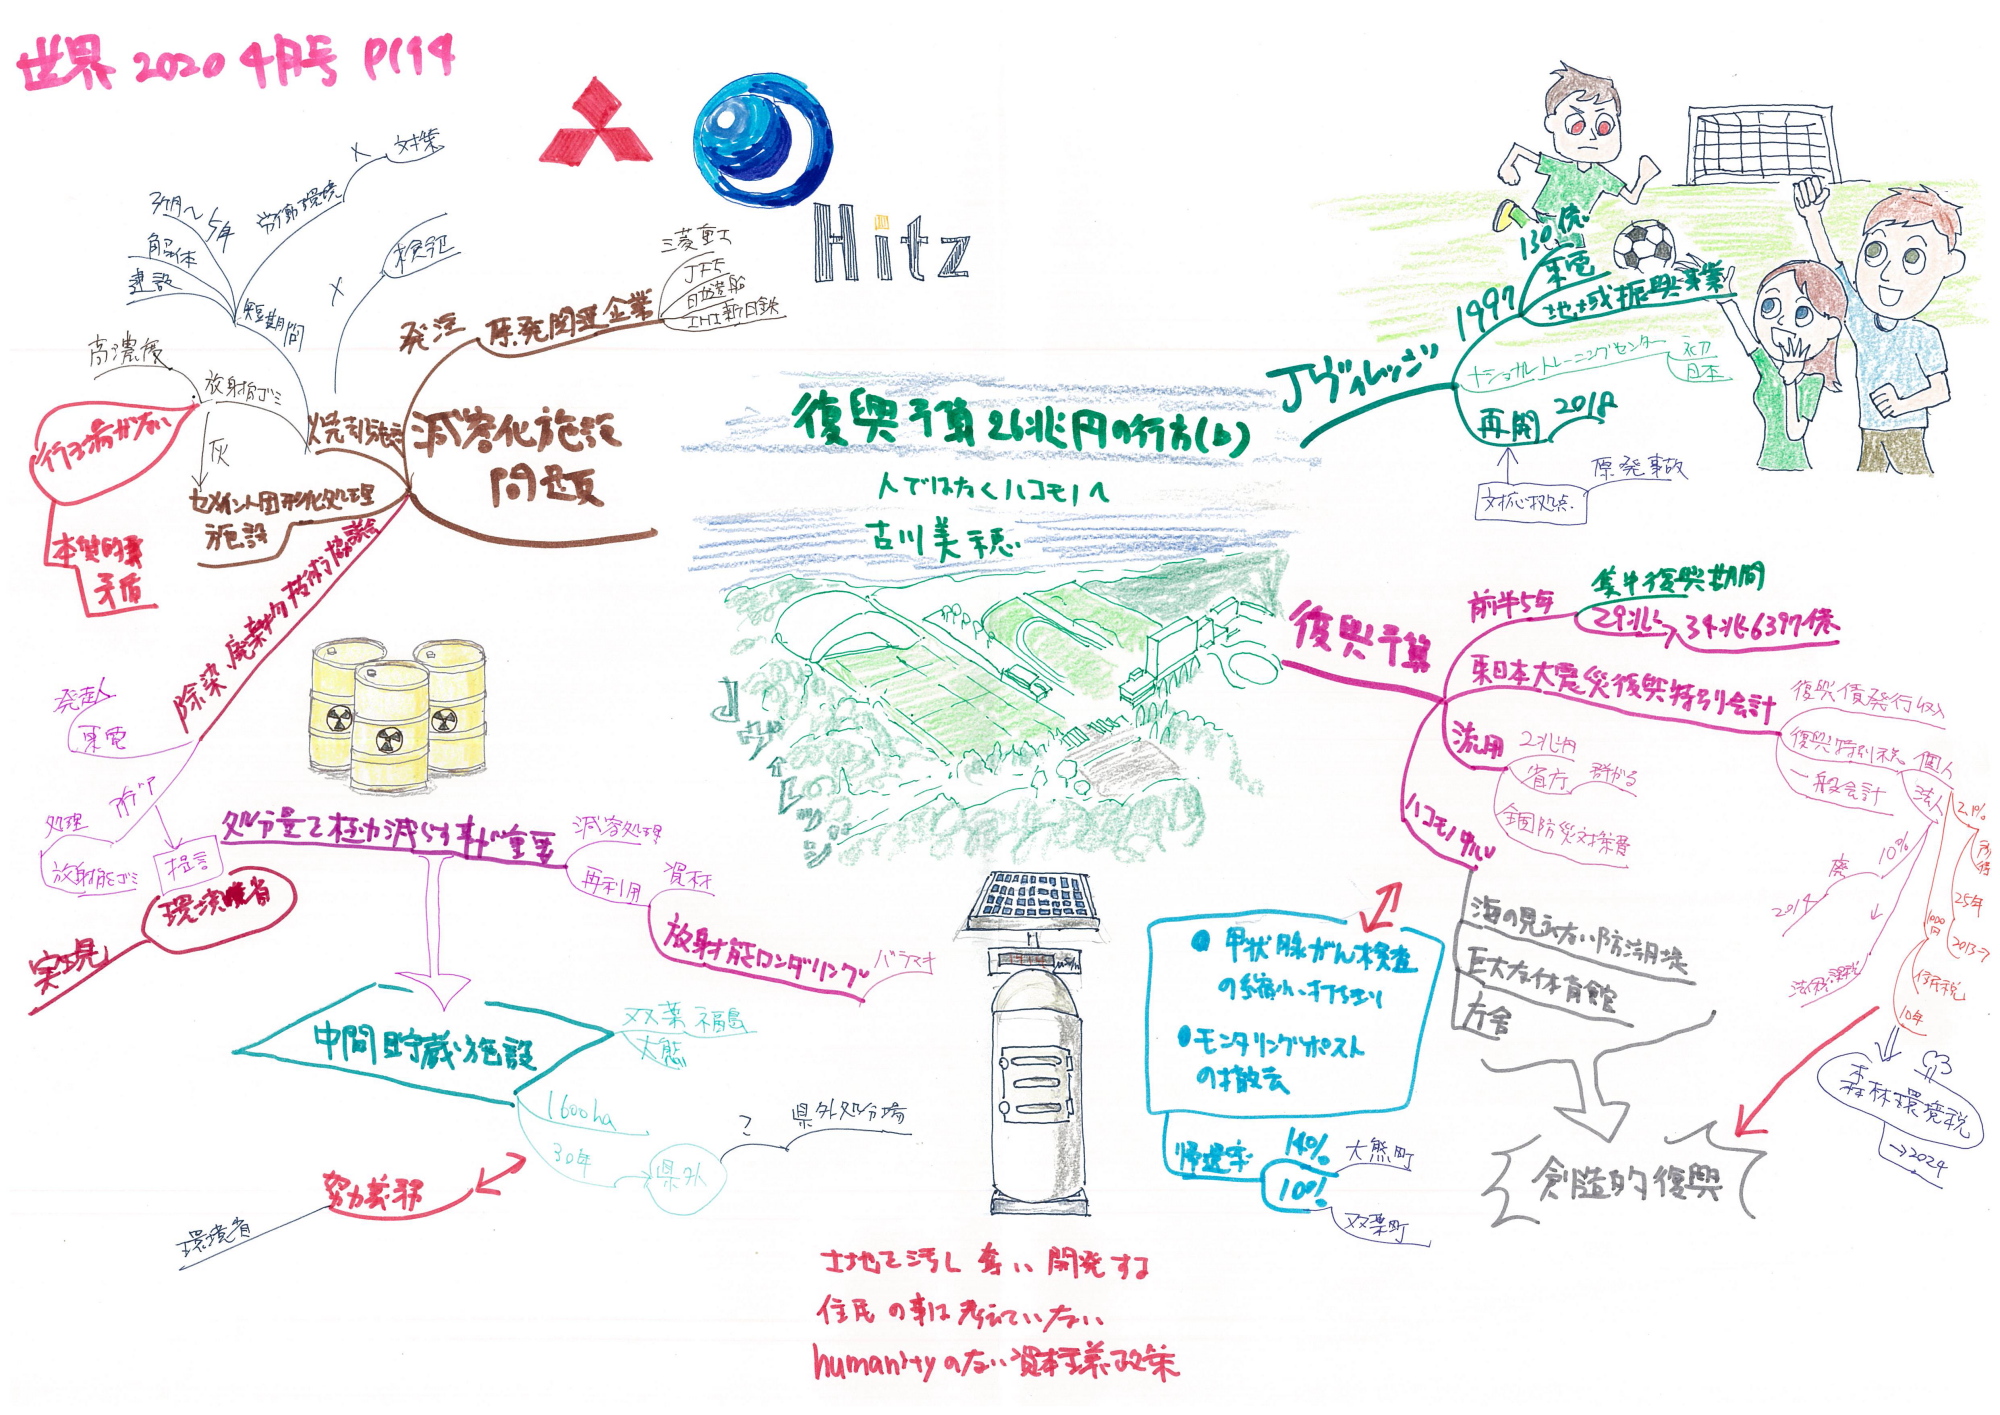 世界 2020 4月号 P194
Hitz
復興予算26兆円の行方(上)
人ではなくハコモノへ
古川美穂
Jヴィレッジ
Jヴィレッジ
1997
130億
東電
地域振興事業
ナショナルトレーニングセンター
初
日本
再開
2018
対応拠点
原発事故
復興予算
前半5年
集中復興期間
29兆
34兆6397億
東日本大震災復興特別会計
復興債発行収入
復興特別税
個人
法人
一般会計
2.1%
所得
25年
2013~
1000円
住民税
10年
10%
廃
2014
法人税減税
森林環境税
→2024
流用
2兆円
省庁
群がる
全国防災対策費
ハコモノ
海の見えない防潮堤
巨大な体育館
庁舎
創造的復興
●甲状腺がん検査
の縮小、打ち切り
●モニタリングポスト
の撤去
帰還率
14%
大熊町
10%
双葉町
μSv/h
減容化施設
問題
発注
原発関連企業
三菱重工
JFE
日立造船
IHI 新日鉄
焼却施設
検証
×
短期間
労働環境
×
対策
3ヶ月〜5年
解体
建設
放射能ゴミ
高濃度
灰
行き場がない
本質的
矛盾
セメント固形化処理
施設
除染・廃棄物技術協議会
発起人
東電
アイデア
処理
放射能ゴミ
提言
環境省
実現
処分量を極力減らす事が重要
減容処理
再利用
資材
放射能ロンダリング
バラマキ
中間貯蔵施設
双葉
福島
大熊
1600ha
30年
県外
?
県外処分場
努力義務
環境省
土地を汚し 奪い 開発する
住民の事は考えていない
humanityのない資本主義政策